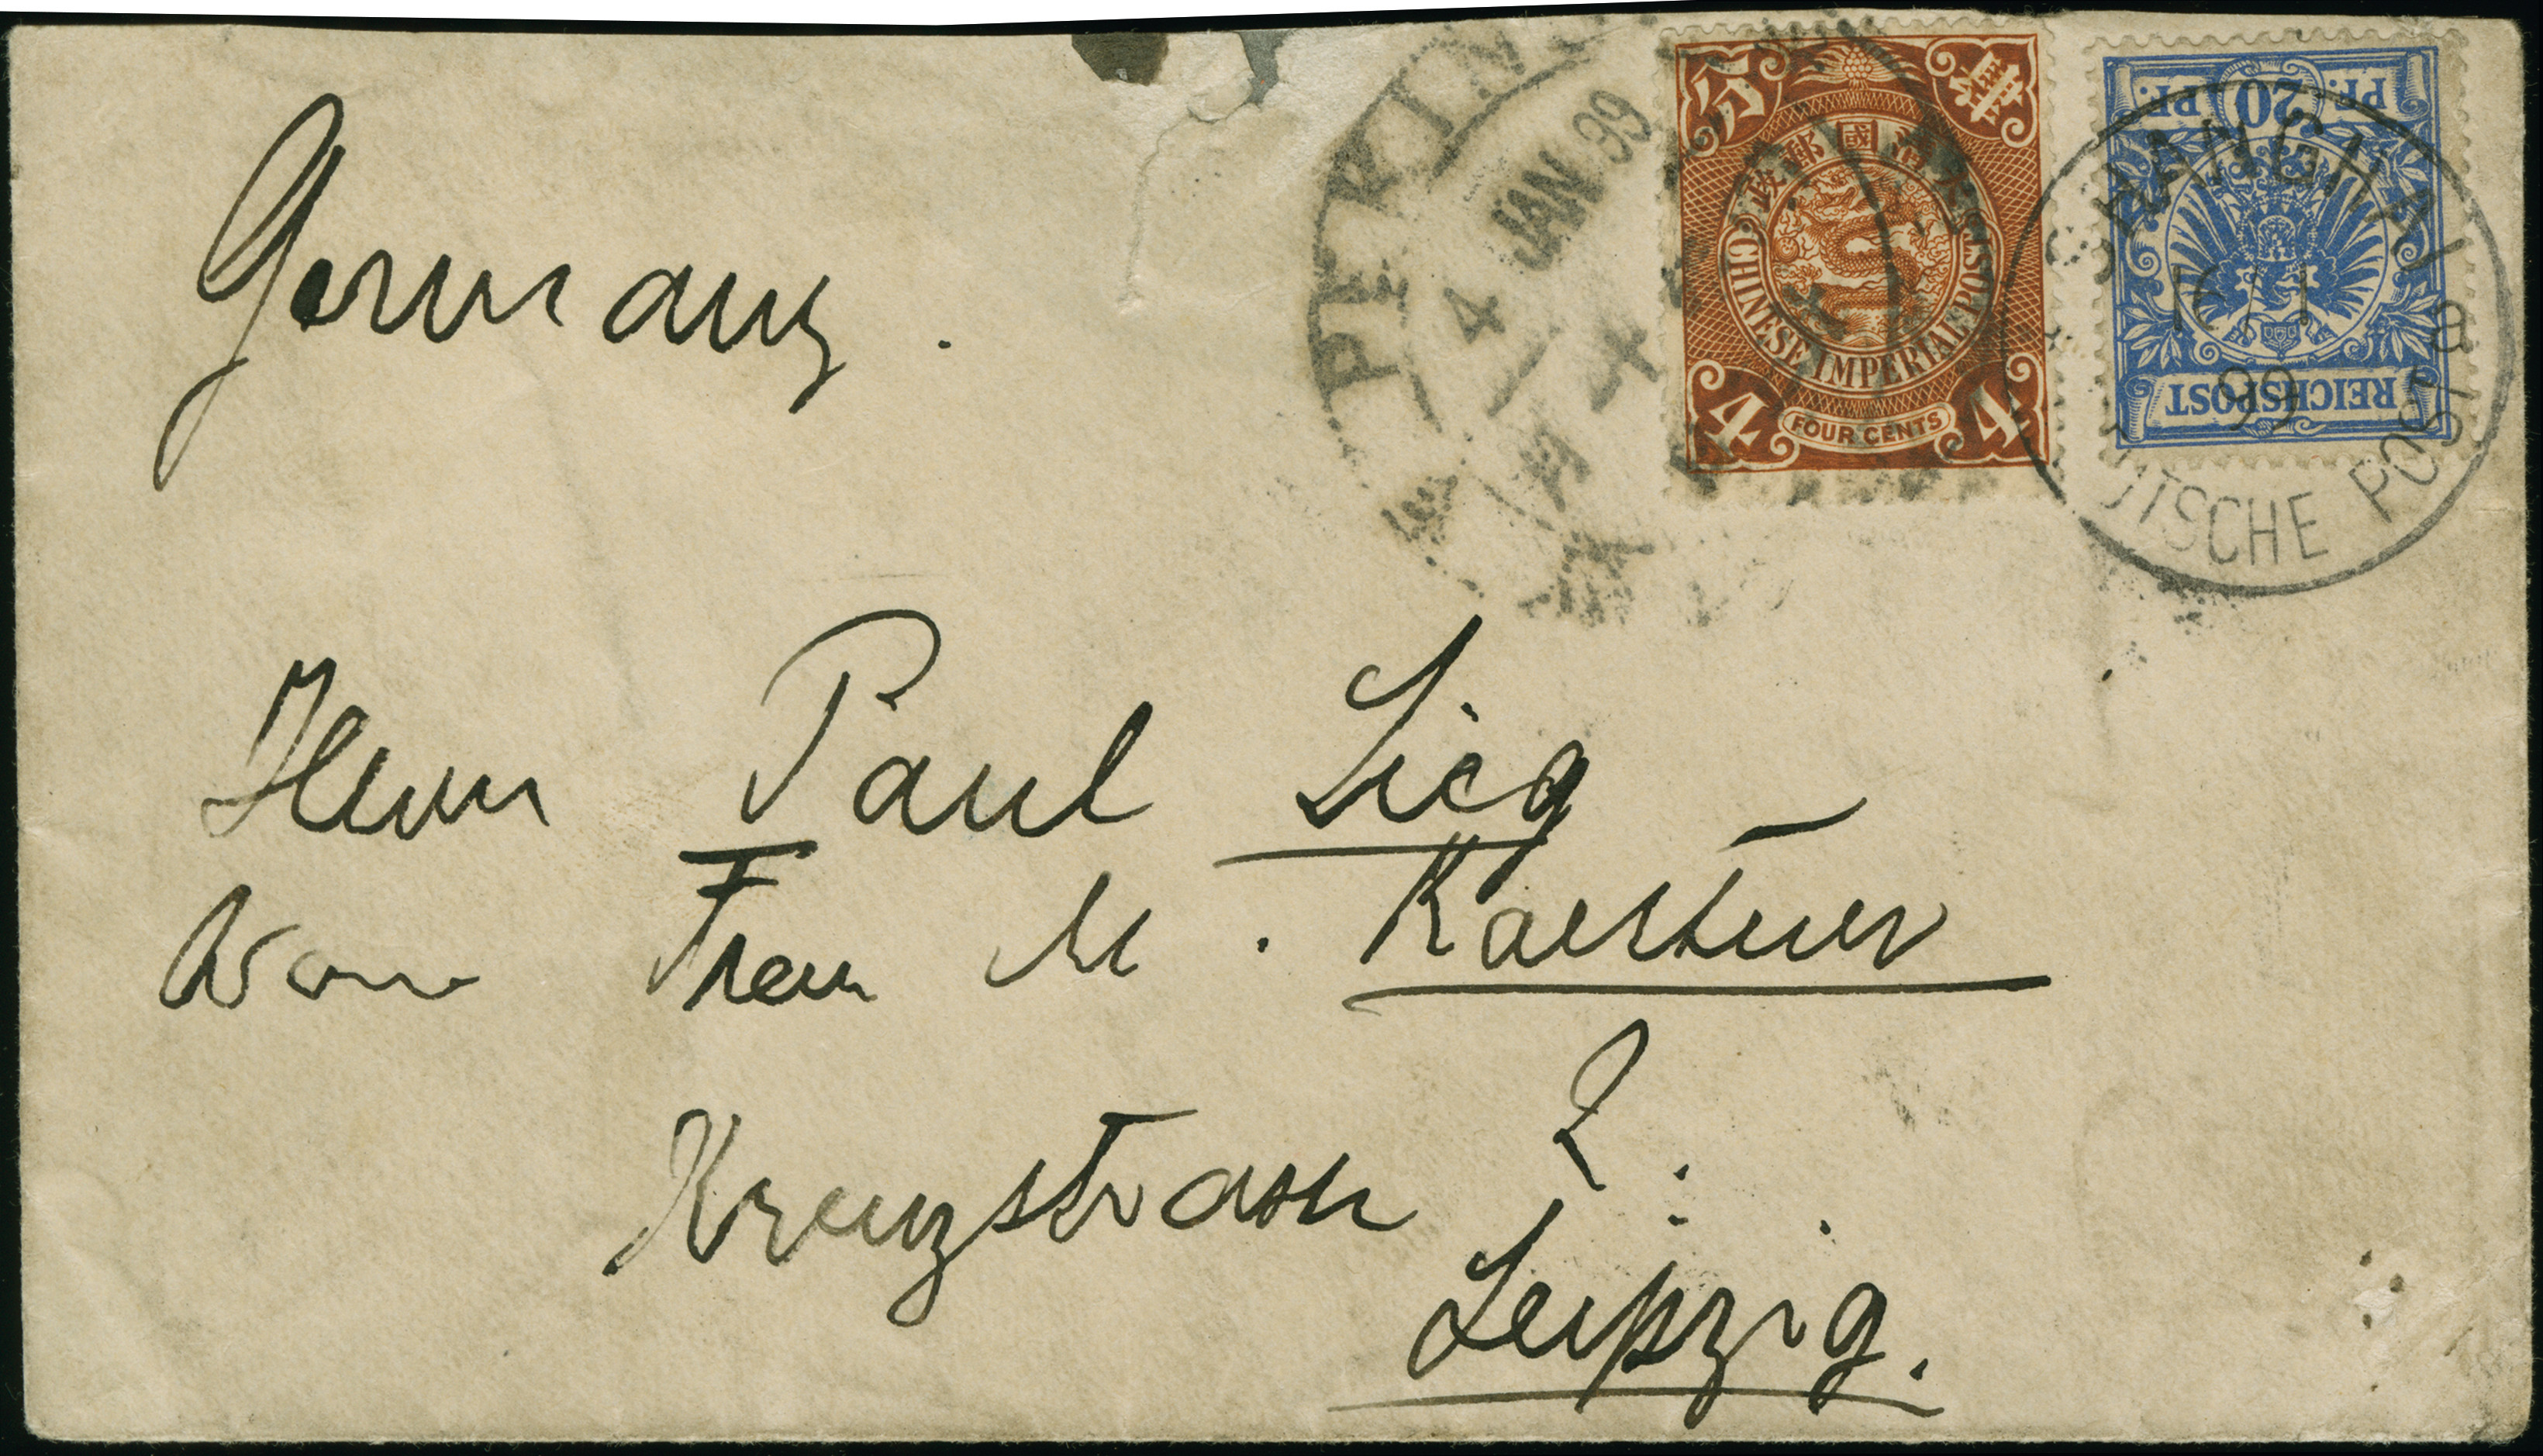 PEKING
4 JAN 99
分 肆
大清國郵政
CHINESE IMPERIAL POST
4 FOUR CENTS 4
PF. 20 PF.
REICHSPOST
SHANGHAI a
16/1
99
DEUTSCHE POST
Germany.
Herrn Paul Lieg
Frau M. Kaestner
Kreuzstrasse 2.
Leipzig.